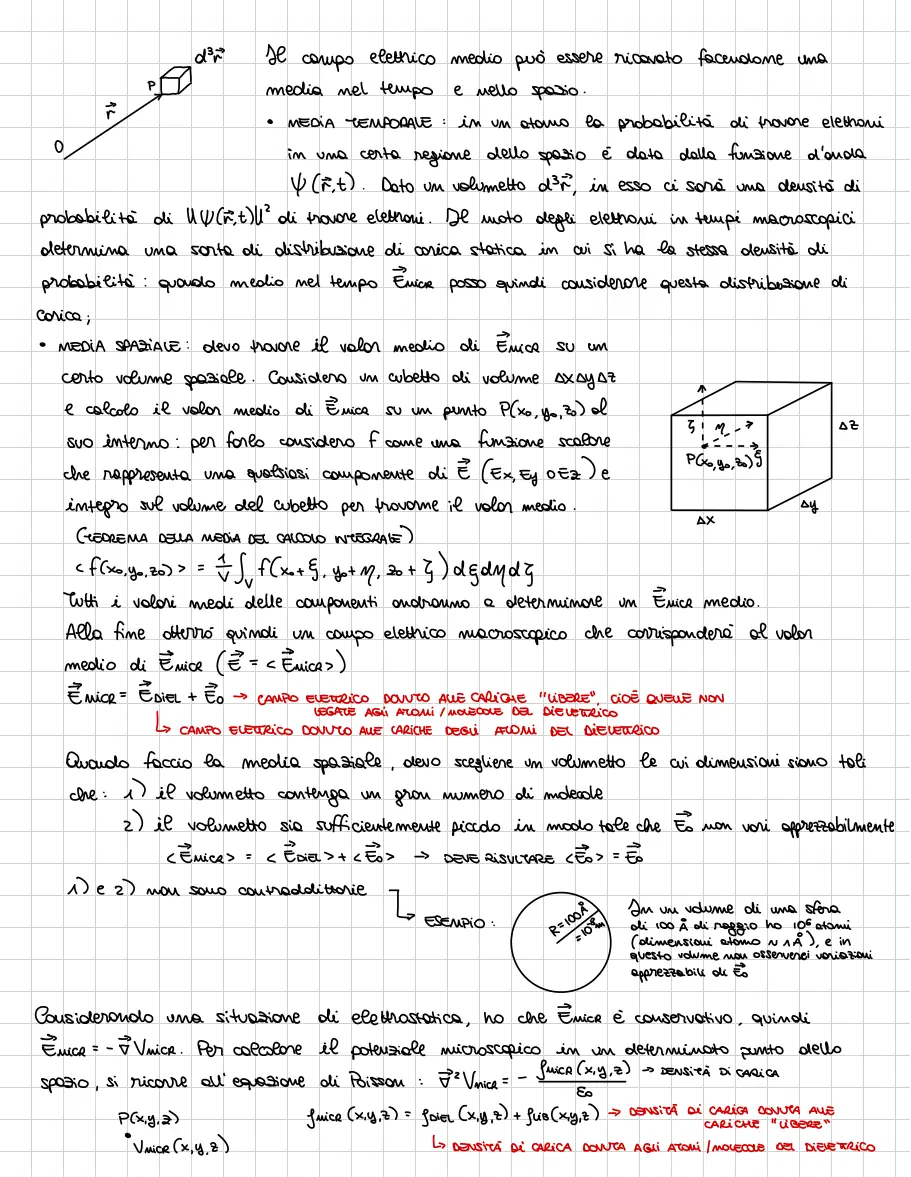 d³r⃗
P
r⃗
O
Il campo elettrico medio può essere ricavato facendone una
media nel tempo e nello spazio.
• MEDIA TEMPORALE: in un atomo la probabilità di trovare elettroni
in una certa regione dello spazio è data dalla funzione d'onda
ψ(r⃗,t). Dato un volumetto d³r⃗, in esso ci sarà una densità di
probabilità di ||ψ(r⃗,t)||² di trovare elettroni. Il moto degli elettroni in tempi macroscopici
determina una sorta di distribuzione di carica statica in cui si ha la stessa densità di
probabilità: quando medio nel tempo E⃗MICR posso quindi considerare questa distribuzione di
carica;
• MEDIA SPAZIALE: devo trovare il valor medio di E⃗MICR su un
certo volume spaziale. Considero un cubetto di volume ΔxΔyΔz
e calcolo il valor medio di E⃗MICR su un punto P(x₀,y₀,z₀) al
suo interno: per farlo considero f come una funzione scalare
che rappresenta una qualsiasi componente di E⃗ (Ex, Ey o Ez) e
integro sul volume del cubetto per trovarne il valor medio.
ζ
η
P(x₀,y₀,z₀) ξ
Δz
Δy
Δx
(TEOREMA DELLA MEDIA DEL CALCOLO INTEGRALE)
<f(x₀,y₀,z₀)> = 1/V ∫V f(x₀+ξ, y₀+η, z₀+ζ) dξdηdζ
Tutti i valori medi delle componenti andranno a determinare un E⃗MICR medio.
Alla fine otterrò quindi un campo elettrico macroscopico che corrisponderà al valor
medio di E⃗MICR (E⃗ = <E⃗MICR>)
E⃗MICR = E⃗DIEL + E⃗₀ → CAMPO ELETTRICO DOVUTO ALLE CARICHE "LIBERE", CIOÈ QUELLE NON
LEGATE AGLI ATOMI/MOLECOLE DEL DIELETTRICO
↳ CAMPO ELETTRICO DOVUTO ALLE CARICHE DEGLI ATOMI DEL DIELETTRICO
Quando faccio la media spaziale, devo scegliere un volumetto le cui dimensioni siano tali
che: 1) il volumetto contenga un gran numero di molecole
2) il volumetto sia sufficientemente piccolo in modo tale che E⃗₀ non vari apprezzabilmente
<E⃗MICR> = <E⃗DIEL> + <E⃗₀> → DEVE RISULTARE <E⃗₀> = E⃗₀
1) e 2) non sono contraddittorie
↳ ESEMPIO:
R=100Å
=10⁻⁸m
In un volume di una sfera
di 100 Å di raggio ho 10⁶ atomi
(dimensioni atomo ~ 1 Å), e in
questo volume non osserverei variazioni
apprezzabili di E⃗₀
Considerando una situazione di elettrostatica, ho che E⃗MICR è conservativo, quindi
E⃗MICR = -∇⃗VMICR. Per calcolare il potenziale microscopico in un determinato punto dello
spazio, si ricorre all'equazione di Poisson: ∇⃗²VMICR = - ρMICR(x,y,z)/ε₀ → DENSITÀ DI CARICA
P(x,y,z)
•VMICR(x,y,z)
ρMICR(x,y,z) = ρDIEL(x,y,z) + ρLIB(x,y,z) → DENSITÀ DI CARICA DOVUTA ALLE
CARICHE "LIBERE"
↳ DENSITÀ DI CARICA DOVUTA AGLI ATOMI/MOLECOLE DEL DIELETTRICO